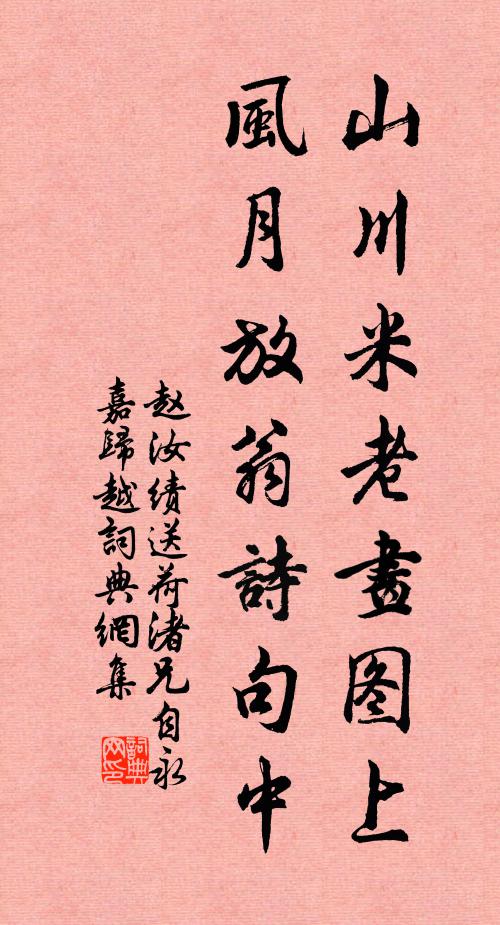 山川米老畫图上
風月放翁詩句中
赵汝績送荷渚兄自永
嘉歸越詞典網集
詞典网印